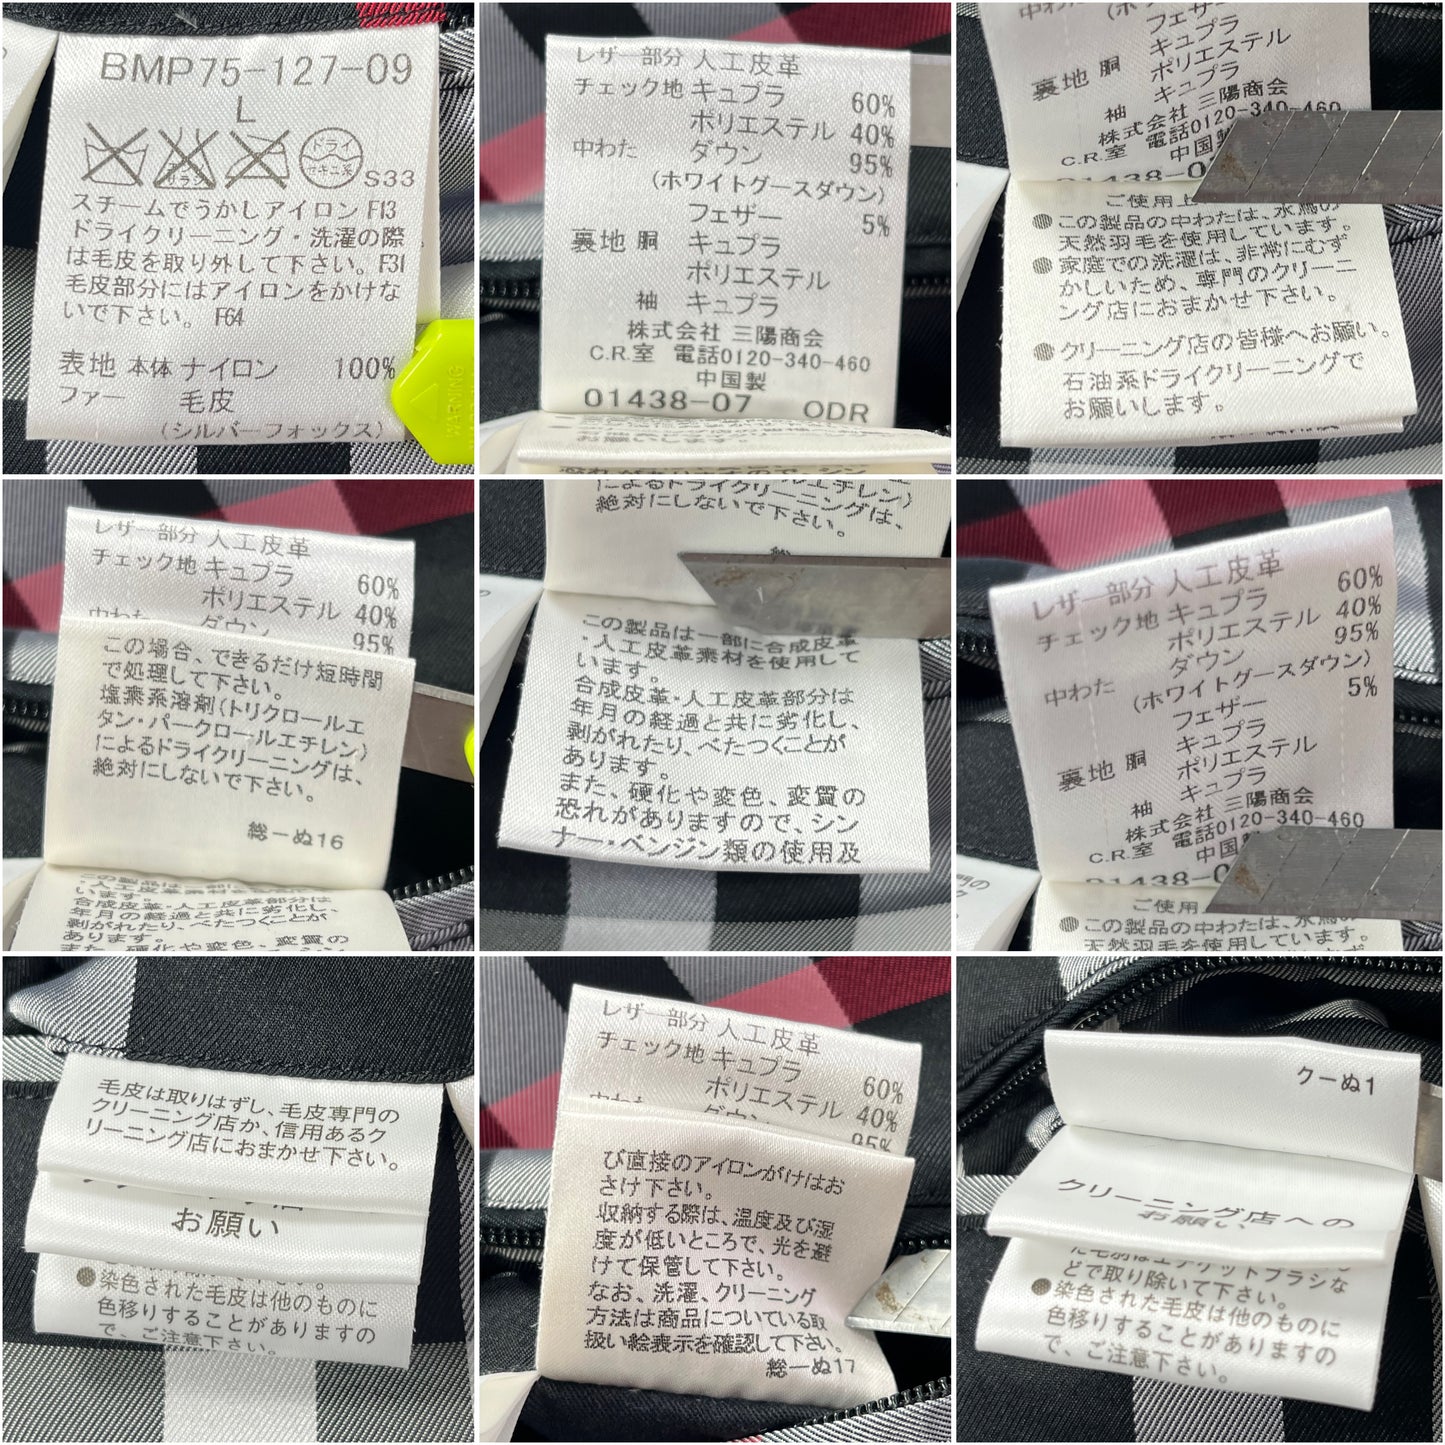 BMP75-127-09
L
ドライ
セキユ系
S33
スチームでうかしアイロン F13
ドライクリーニング・洗濯の際
は毛皮を取り外して下さい。F31
毛皮部分にはアイロンをかけな
いで下さい。 F64
表地 本体 ナイロン 100%
ファー 毛皮
(シルバーフォックス)
WARNING
レザー部分 人工皮革
チェック地 キュプラ 60%
ポリエステル 40%
中わた ダウン 95%
(ホワイトグースダウン)
フェザー 5%
裏地 胴 キュプラ
ポリエステル
袖 キュプラ
株式会社 三陽商会
C.R.室 電話0120-340-460
中国製
01438-07 ODR
お願いします。
フェザー
キュプラ
裏地 胴 ポリエステル
キュプラ
袖 三陽商会
株式会社 電話0120-340-460
C.R.室 中国製
01438-0
ご使用上
●この製品の中わたは、水鳥の
天然羽毛を使用しています。
●家庭での洗濯は、非常にむず
かしいため、専門のクリーニ
ング店におまかせ下さい。
●クリーニング店の皆様へお願い。
石油系ドライクリーニングで
お願いします。
レザー部分 人工皮革
チェック地 キュプラ 60%
ポリエステル 40%
中わた ダウン 95%
この場合、できるだけ短時間
で処理して下さい。
塩素系溶剤(トリクロールエ
タン・パークロールエチレン)
によるドライクリーニングは、
絶対にしないで下さい。
総ーぬ16
います。
合成皮革・人工皮革部分は
年月の経過と共に劣化し、
剥がれたり、べたつくことが
あります。
また、硬化や変色、変質の
によるドライクリーニングは、
絶対にしないで下さい。
この製品は一部に合成皮革
・人工皮革素材を使用して
います。
合成皮革・人工皮革部分は
年月の経過と共に劣化し、
剥がれたり、べたつくことが
あります。
また、硬化や変色、変質の
恐れがありますので、シン
ナー・ベンジン類の使用及
レザー部分 人工皮革
チェック地 キュプラ 60%
ポリエステル 40%
ダウン 95%
中わた (ホワイトグースダウン)
フェザー 5%
キュプラ
裏地 胴 ポリエステル
キュプラ
袖 三陽商会
株式会社 電話0120-340-460
C.R.室 中国
01438-0
ご使用
●この製品の中わたは、水鳥の
天然羽毛を使用しています。
毛皮は取りはずし、毛皮専門の
クリーニング店か、信用あるク
リーニング店におまかせ下さい。
お願い
●染色された毛皮は他のものに
色移りすることがありますの
で、ご注意下さい。
レザー部分 人工皮革
チェック地 キュプラ 60%
ポリエステル 40%
中わた ダウン 95%
び直接のアイロンがけはお
さけ下さい。
収納する際は、温度及び湿
度が低いところで、光を避
けて保管して下さい。
なお、洗濯、クリーニング
方法は商品についている取
扱い絵表示を確認して下さい。
総ーぬ17
クーぬ1
クリーニング店への
お願い
どで取り除いて下さい。
●染色された毛皮は他のものに
色移りすることがありますの
で、ご注意下さい。